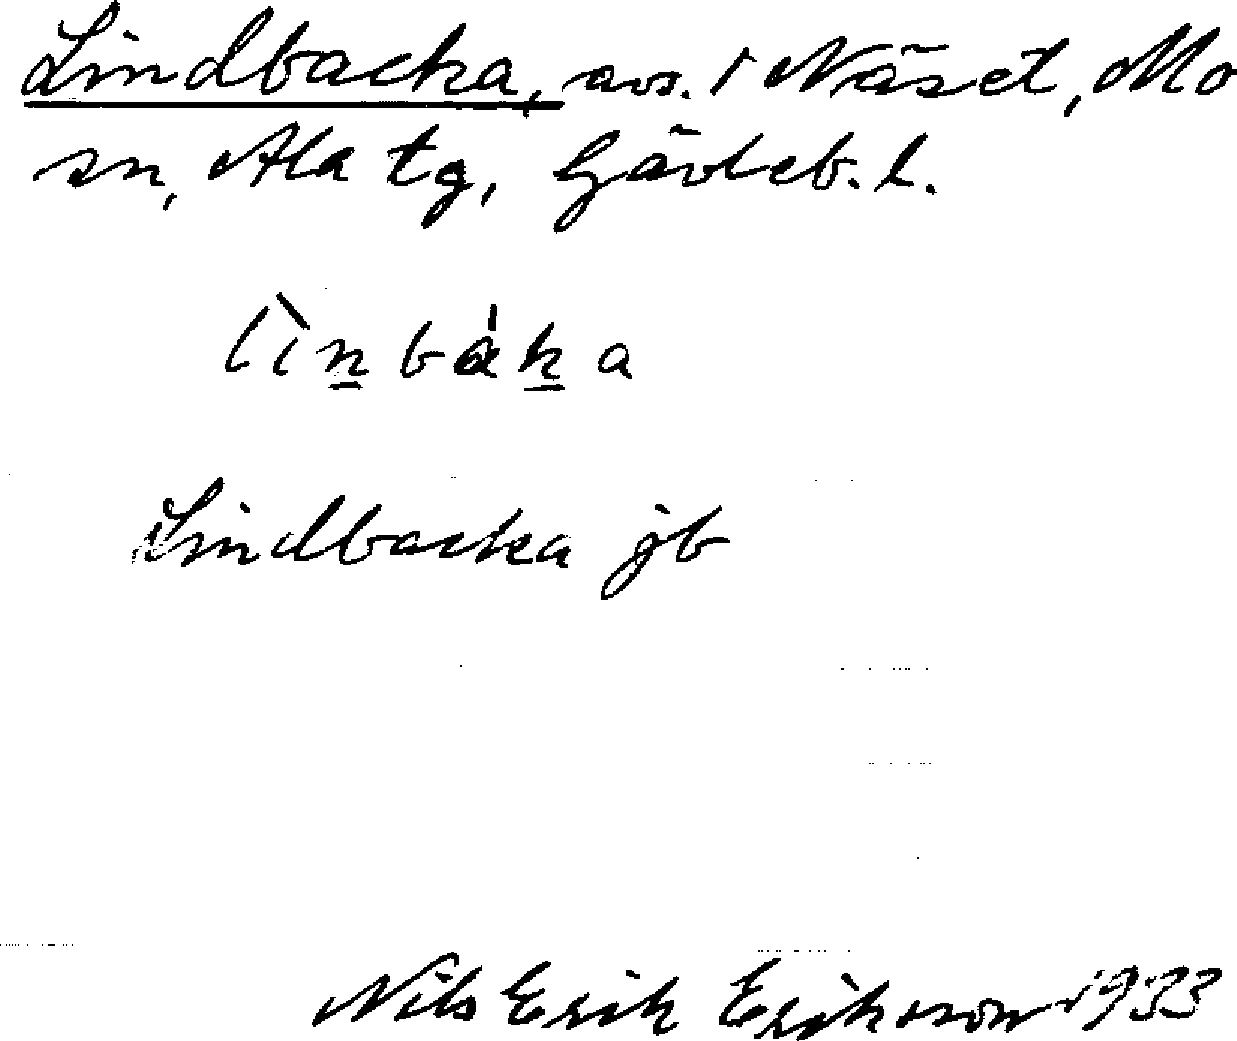 Lindbacka, avs. i Näset, Mo
sn, Ala tg, Gävleb. l.
lìn̲bàk̲a
Lindbacka jb
Nils Erik Eriksson 1933